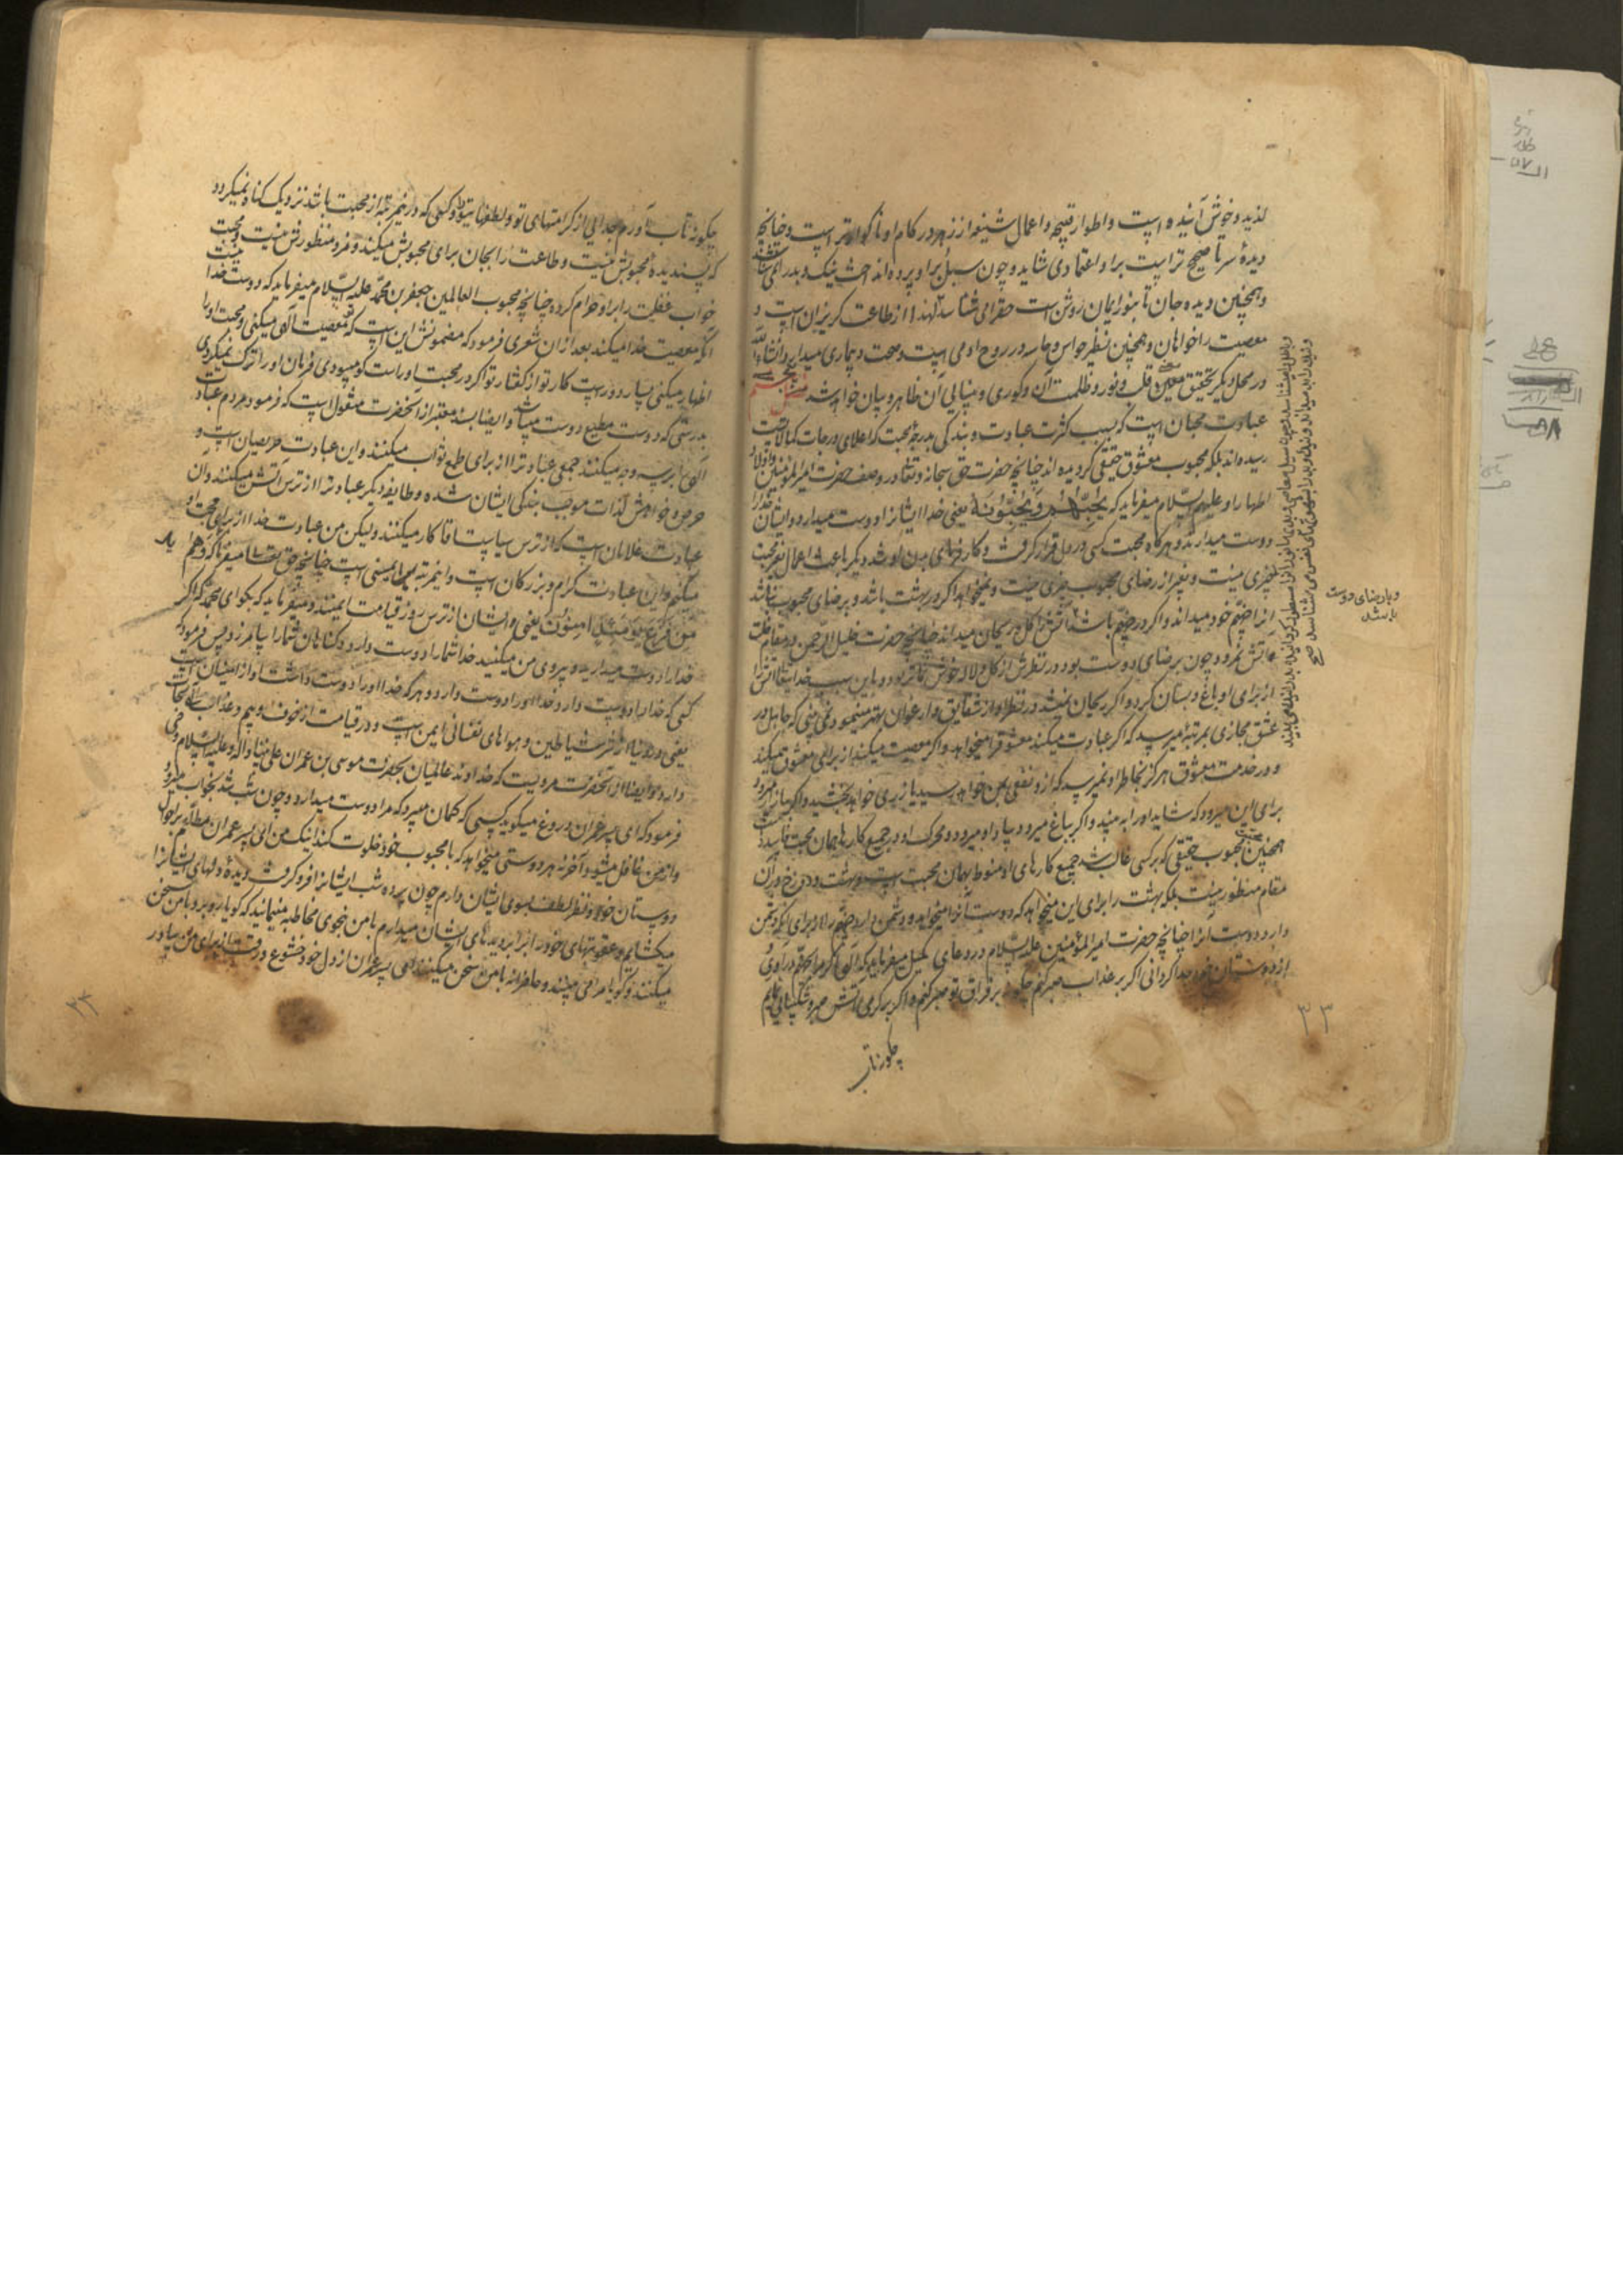 لذیذ و خوش آینده است و اطوار قبیحه و اعمال شنیعه از زهر در کام او ناگوارتر است و چنانچه
دیدهٔ سر تا صحیح تر است بر او اعتمادی شاید و چون سبل بر او پرده انداخت نیک و بد را نمی شناسد
و همچنین دیده جان تا بنور ایمان روشن است حق را می شناسد لهذا از طاعت گریزان است و
معصیت را خواهان و همچنین نظیر حواس و حاسه در روح آدمی است و صحت و بیماری میدارد و انشاء الله
در محل دیگر تحقیق معنی قلب و نور و ظلمت آن و کوری و بینایی آن ظاهر و بیان خواهد شد
عبادت محبان است که بسبب کثرت عبادت و بندگی بدرجهٔ محبت که اعلای درجات کمالاتست
رسیده اند بلکه محبوب معشوق حقیقی گردیده اند چنانچه حضرت حق سبحانه و تعالی در وصف حضرت امیر المؤمنین و اولاد
اطهار او علیهم السلام میفرماید که یُحِبُّهُم وَیُحِبُّونَهُ یعنی خدا ایشانرا دوست میدارد و ایشان خدا را
دوست میدارند و هرگاه محبت کسی در دل قرار گرفت و کارفرمای بدن او شد دیگر باعث اعمال بغیر محبت
چیزی نیست و بغیر از رضای محبوب چیزی نیست و نمیخواهد اگر در بهشت باشد و برضای محبوب نباشد
آنرا جهنم خود میداند و اگر در جهنم باشد آتش را گل و ریحان میداند چنانچه حضرت خلیل الرحمن در مقام خلت
آتش نمرود چون برضای دوست بود در نظرش از گل و لاله خوش تر بود و باین سبب خدایتعالی آتش را
از برای او باغ و بستان کرد و اگر ریحان نمیشد در نظر او از شقایق و ارغوان بهتر مینمود نمی بینی که جاهل در
عشق مجازی بمرتبهٔ میرسد که اگر عبادت میکند معشوق را میخواهد و اگر معصیت میکند از برای معشوق میکند
و در خدمت معشوق هرگز بخاطر او نمیرسد که از او نفعی بمن خواهد رسید یا زری خواهد بخشید و اگر بباز میرود
برای این میرود که شاید او را به بیند و اگر بباغ میرود بیاد او میرود و محرک او در جمیع کارها همان محبت فاسد است
همچنین محبت محبوب حقیقی که بر کسی غالب شد جمیع کارهای او منوط بهمان محبت است و بهشت و دوزخ در آن
مقام منظور نیست بلکه بهشت را برای این میخواهد که دوست آنرا میخواهد و دشمن دارد جهنم را برای آنکه دشمن
دارد دوست آنرا چنانچه حضرت امیر المؤمنین علیه السلام در دعای کمیل میفرماید که الهی اگر مرا بجهنم درآوری و
از دوستان خود جدا گردانی اگر بر عذاب صبر کنم چگونه بر فراق تو صبر کنم و اگر بر گرمی آتش صبر و شکیبائی نمایم
چگونه تاب
و یاد رضای دوست
باشد
۳۳
چگونه تاب آورم جدایی از کرامتهای تو و لطفهای ترا و کسی که در این مرتبه از محبت باشد نزدیک گناه نمیگردد
که پسندیدهٔ محبوبش نیست و طاعت را بجان برای محبوبش میکند و مزد منظورش نیست محبت
خواب غفلت را بر او حرام کرده چنانچه محبوب العالمین جعفر بن محمد علیه السلام میفرماید که دوست خدا نیست
آنکه معصیت خدا میکند بعد از آن شعری فرمود که مضمونش این است که معصیت الهی میکنی و محبت او را
اظهار میکنی بسیار دور است کار تو از گفتار تو اگر در محبت او راست گو میبودی فرمان او را ترک نمیکردی
بدرستی که دوست مطیع دوست میباشد و ایضا بسند معتبر از آنحضرت منقول است که فرمود مردم عبادت
الهی را بر سه وجه میکنند جمعی عبادت را از برای طمع ثواب میکنند و این عبادت حریصان است و
حرص و خواهش لذات موجب بندگی ایشان شده و طایفه دیگر عبادت را از ترس آتش میکنند و آن
عبادت غلامان است که از ترس سیاست آقا کار میکنند و لیکن من عبادت خدا از برای محبت او
میکنم و این عبادت گرام و بزرگان است و این مرتبه ایمنی است چنانچه حق تعالی میفرماید که وهم
مِن فَزَعٍ یَومَئِذٍ امِنُونَ یعنی و ایشان از ترس روز قیامت ایمنند و میفرماید که بگو ای محمد که اگر
خدا را دوست میدارید پیروی من میکنید خدا شما را دوست دارد و گناهان شما را بیامرزد پس فرمود که
کسی که خدا را دوست دارد خدا او را دوست دارد و هر که خدا او را دوست داشت او از ایمنان است
یعنی در دنیا از شر شیاطین و هواهای نفسانی ایمن است و در قیامت از خوف و بیم و عذاب نجات
دارد و ایضا از آنحضرت مرویست که خداوند عالمیان بحضرت موسی بن عمران علی نبینا و آله و علیه السلام وحی
فرمود که ای پسر عمران دروغ میگوید کسی که گمان میبرد که مرا دوست میدارد و چون شب شد بخواب میرود
و از من غافل میشود آخر نه هر دوستی میخواهد که با محبوب خود خلوت کند اینک من ای پسر عمران مطلعم بر احوال
دوستان خود و نظر لطف بسوی ایشان دارم چون پرده شب ایشانرا فرو گرفت دیدهٔ دلهای ایشانرا
میگشایم و عقوبتهای خود را در برابر دیدهای ایشان میدارم با من بنحوی مخاطبه مینمایند که گویا روبرو با من سخن
میکنند و گویا مرا می بینند و حاضرانه با من سخن میکنند ای پسر عمران از دل خود خشوع و رقت از برای من بیاور